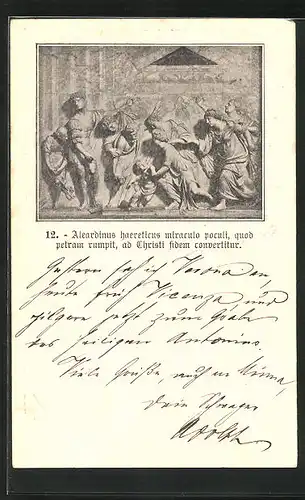 12. - Aleardinus haereticus miraculo poculi, quod
petram rumpit, ad Christi fidem convertitur.
Gestern sah ich Verona an,
heute früh Vicenza und
pilgere jetzt zum Grabe
des heiligen Antonius.
Viele Grüße, auch an Minna,
Dein Schwager
Adolph